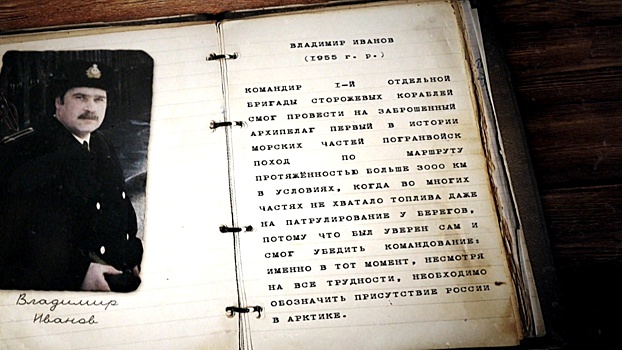 Владимир
Иванов
ВЛАДИМИР ИВАНОВ
(1955 г. р.)
КОМАНДИР 1-Й ОТДЕЛЬНОЙ
БРИГАДЫ СТОРОЖЕВЫХ КОРАБЛЕЙ
СМОГ ПРОВЕСТИ НА ЗАБРОШЕННЫЙ
АРХИПЕЛАГ ПЕРВЫЙ В ИСТОРИИ
МОРСКИХ ЧАСТЕЙ ПОГРАНВОЙСК
ПОХОД ПО МАРШРУТУ
ПРОТЯЖЁННОСТЬЮ БОЛЬШЕ 3000 КМ
В УСЛОВИЯХ, КОГДА ВО МНОГИХ
ЧАСТЯХ НЕ ХВАТАЛО ТОПЛИВА ДАЖЕ
НА ПАТРУЛИРОВАНИЕ У БЕРЕГОВ,
ПОТОМУ ЧТО БЫЛ УВЕРЕН САМ И
СМОГ УБЕДИТЬ КОМАНДОВАНИЕ:
ИМЕННО В ТОТ МОМЕНТ, НЕСМОТРЯ
НА ВСЕ ТРУДНОСТИ, НЕОБХОДИМО
ОБОЗНАЧИТЬ ПРИСУТСТВИЕ РОССИИ
В АРКТИКЕ.